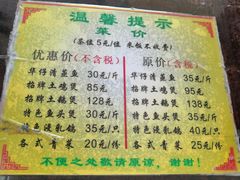 温馨提示
菜价
(茶位5元/位 米饭不收费)
优惠价(不含税) 原价(含税)
华仔清蒸鱼 30元/斤 华仔清蒸鱼 35元/斤
招牌土鸡煲 85元 招牌土鸡煲 95元
招牌土鹅煲 128元 招牌土鹅煲 138元
特色鱼头煲 30元/斤 特色鱼头煲 35元/斤
特色浸乳鸽 35元/只 特色浸乳鸽 40元/只
各式青菜 20元/份 各式青菜 25元/份
不便之处敬请原谅,谢谢!